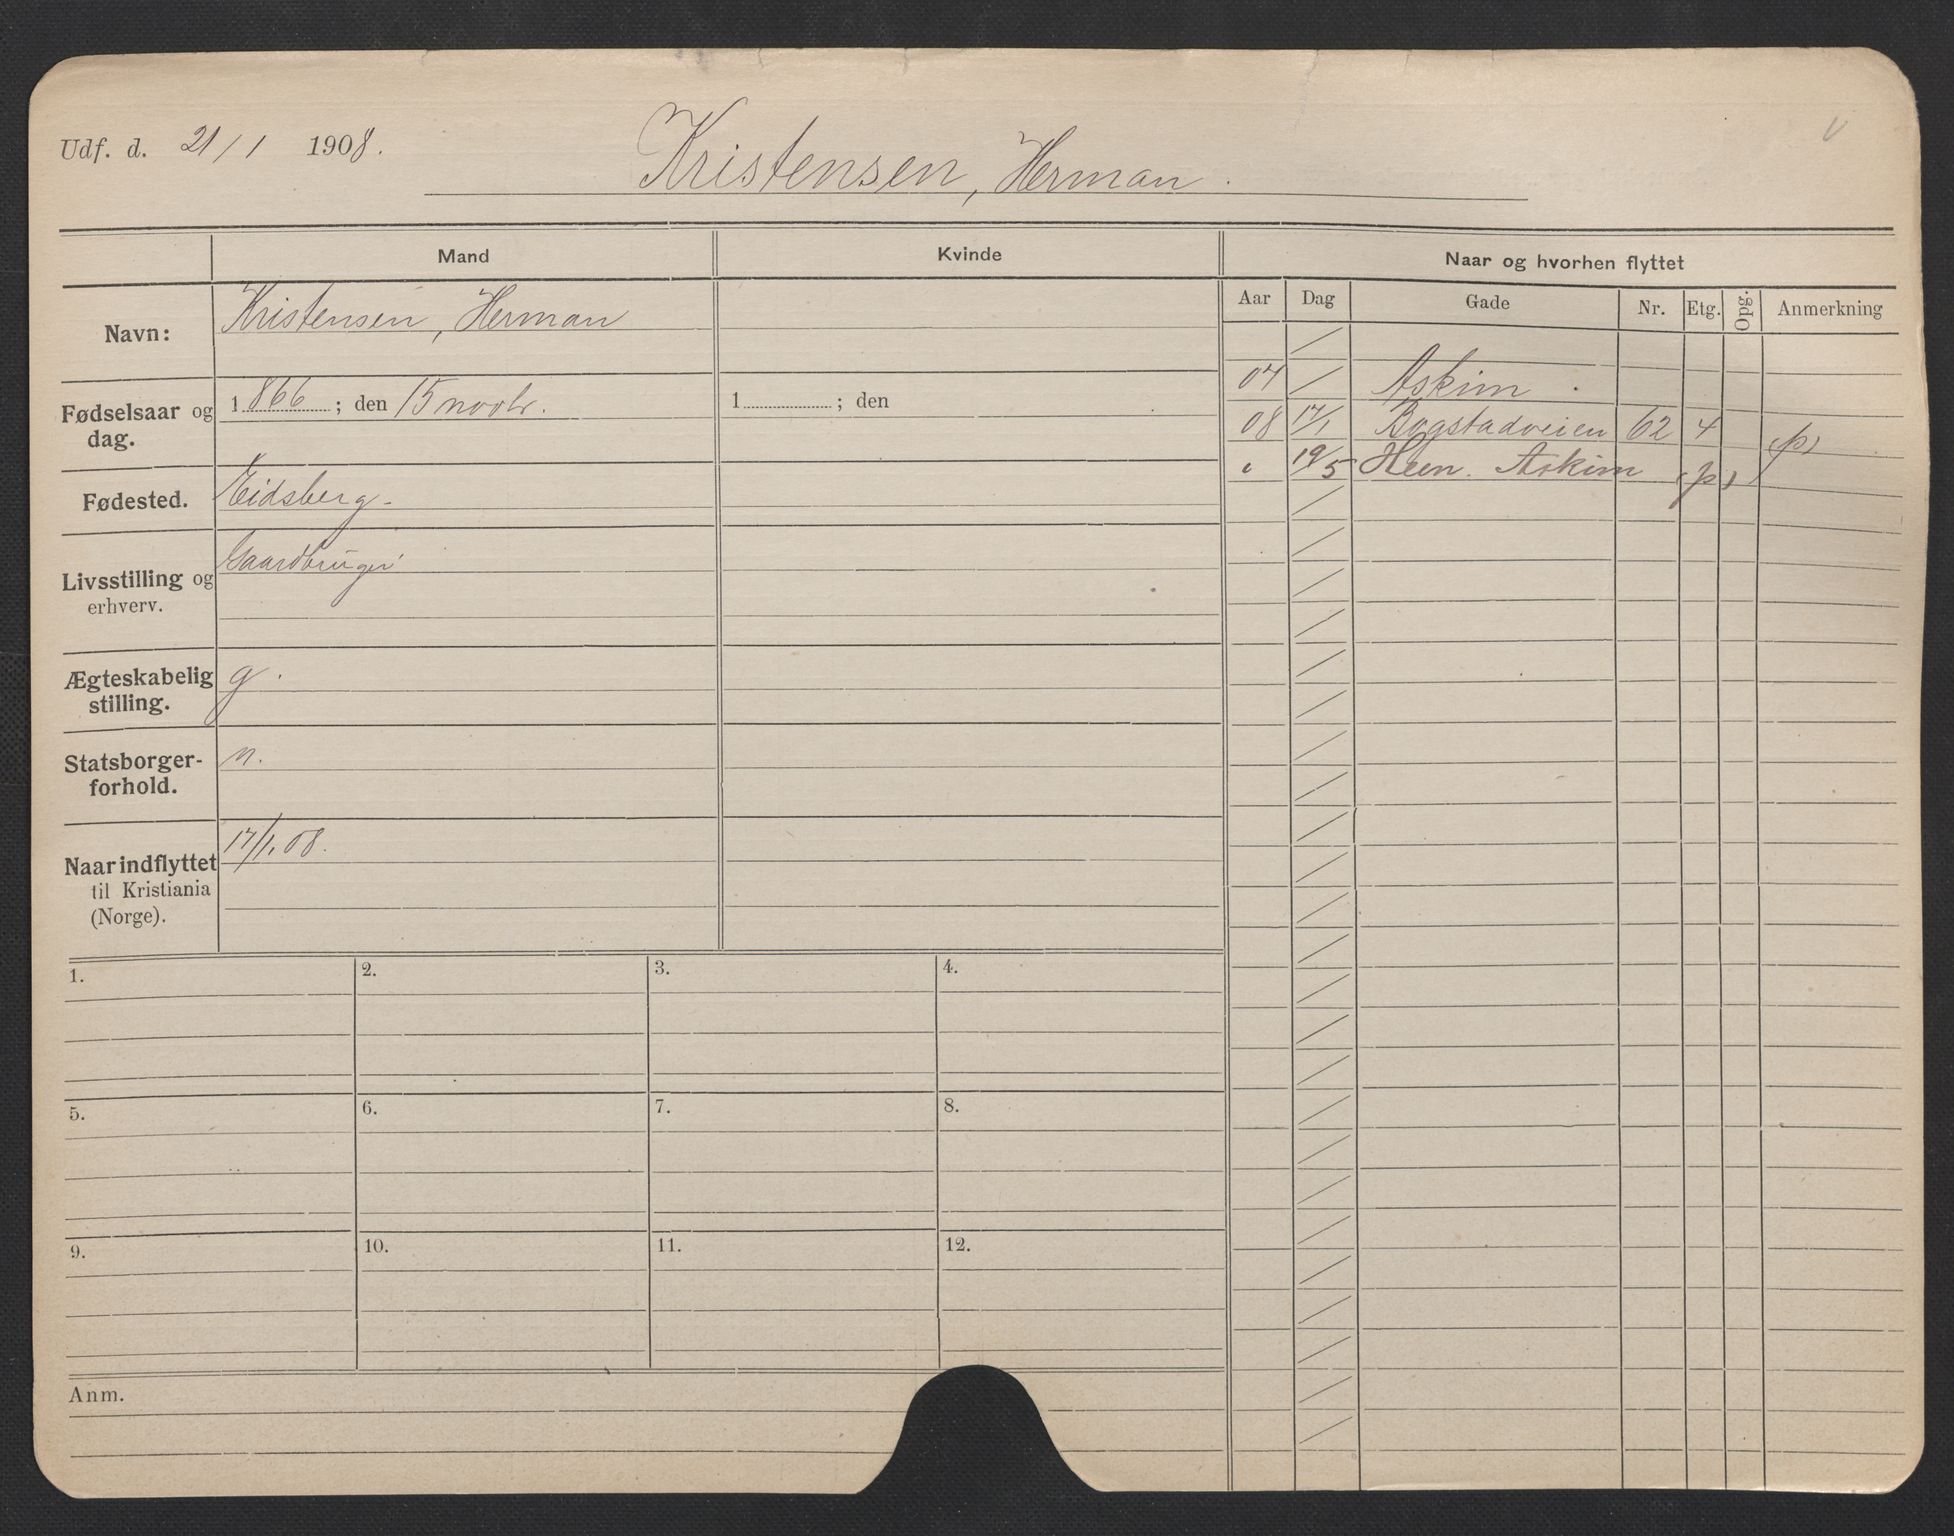 Udf. d. 21/1 1908.
Kristensen, Herman.
Mand Kvinde Naar og hvorhen flyttet
Aar Dag Gade Nr. Etg. Opg. Anmerkning
Navn: Kristensen, Herman
Fødselsaar og dag. 1866; den 15 novbr. 1 ; den
Fødested. Eidsberg.
Livsstilling og erhverv. Gaardbruger
Ægteskabelig stilling. g.
Statsborgerforhold. n.
Naar indflyttet til Kristiania (Norge). 17/1.08.
07 / Askim.
08 17/1 Bogstadveien 62 4 (p)
" 19/5 Heen. Askim (p)
1. 2. 3. 4.
5. 6. 7. 8.
9. 10. 11. 12.
Anm.